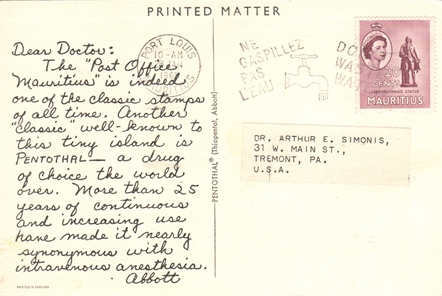 PRINTED MATTER
Dear Doctor:
The "Post Office
Mauritius" is indeed
one of the classic stamps
of all time. Another
"classic" well-known to
this tiny island is
PENTOTHAL — a drug
of choice the world
over. More than 25
years of continuous
and increasing use
have made it nearly
synonymous with
intravenous anesthesia.
Abbott
PRINTED IN ENGLAND
PENTOTHAL® (Thiopental, Abbott)
PORT LOUIS
10-AM
MAURITIUS
NE
GASPILLEZ
PAS
L'EAU
20
CENTS
MAURITIUS
DR. ARTHUR E. SIMONIS,
31 W. MAIN ST.,
TREMONT, PA.
U.S.A.